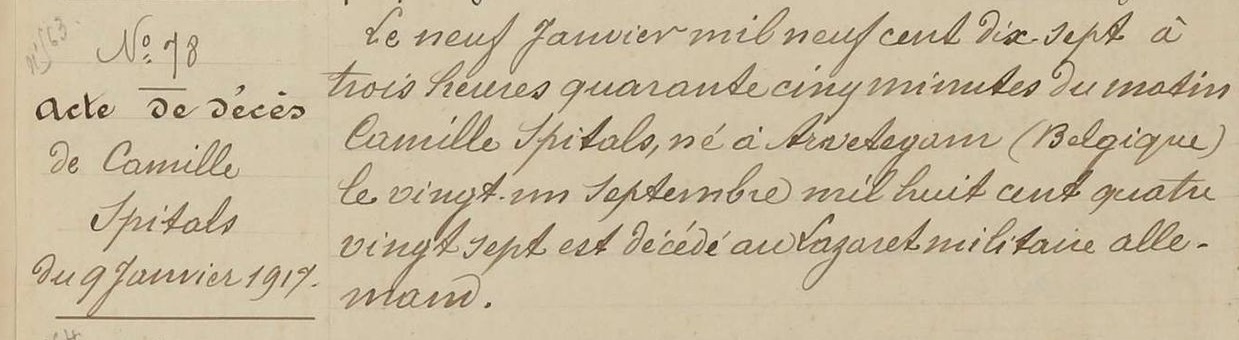 No. 78
Acte de décès
de Camille
Spitals
du 9 Janvier 1917.
Le neuf Janvier mil neuf cent dix-sept à
trois heures quarante cinq minutes du matin
Camille Spitals, né à Arvetegam (Belgique)
le vingt-un Septembre mil huit cent quatre
vingt sept est décédé au Lazaret militaire alle-
mand.